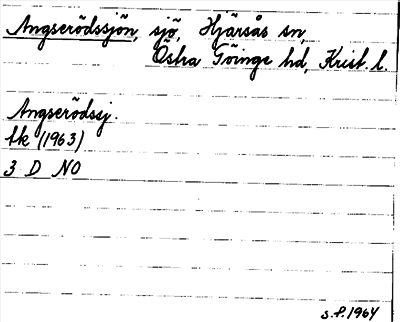 Angserödssjön, sjö, Hjärsås sn,
Östra Göinge hd, Krist. l.
Angserödssj.
tk (1963)
3 D NO
s.f. 1964